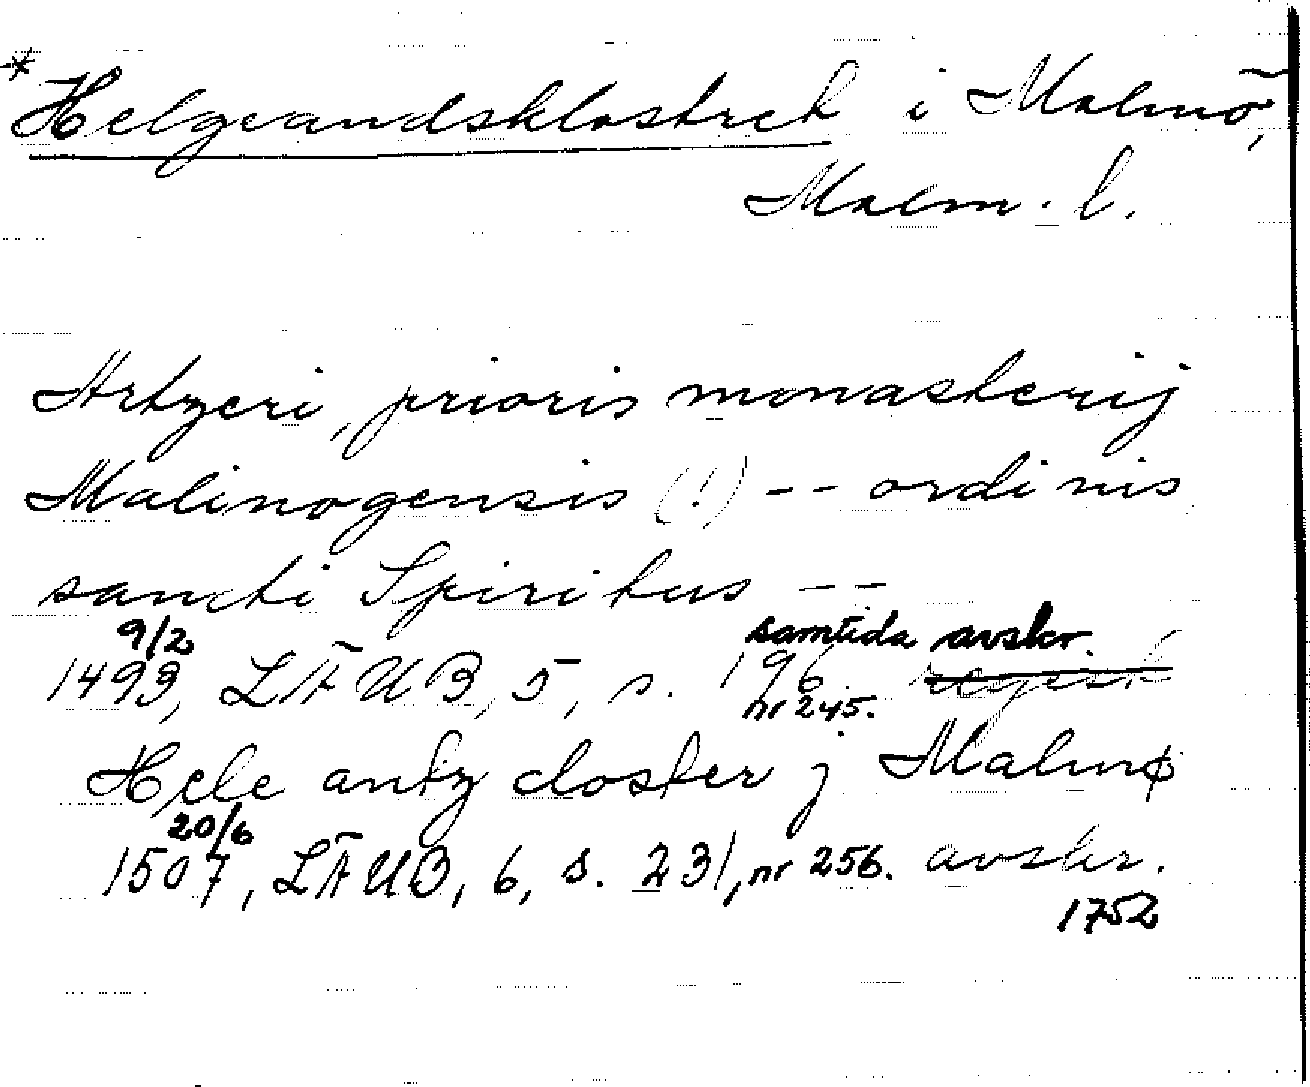 *Helgeandsklostret i Malmö,
Malm. l.
Artzeri, prioris monasterij
Malinogensis (!) -- ordinis
sancti Spiritus --
9/2 samtida avskr.
1493, LÄUB, 5, s. 196 regest
nr 245.
Hele antz closter j Malmø
20/6
1507, LÄUB, 6, s. 231, nr 256. avskr.
1752